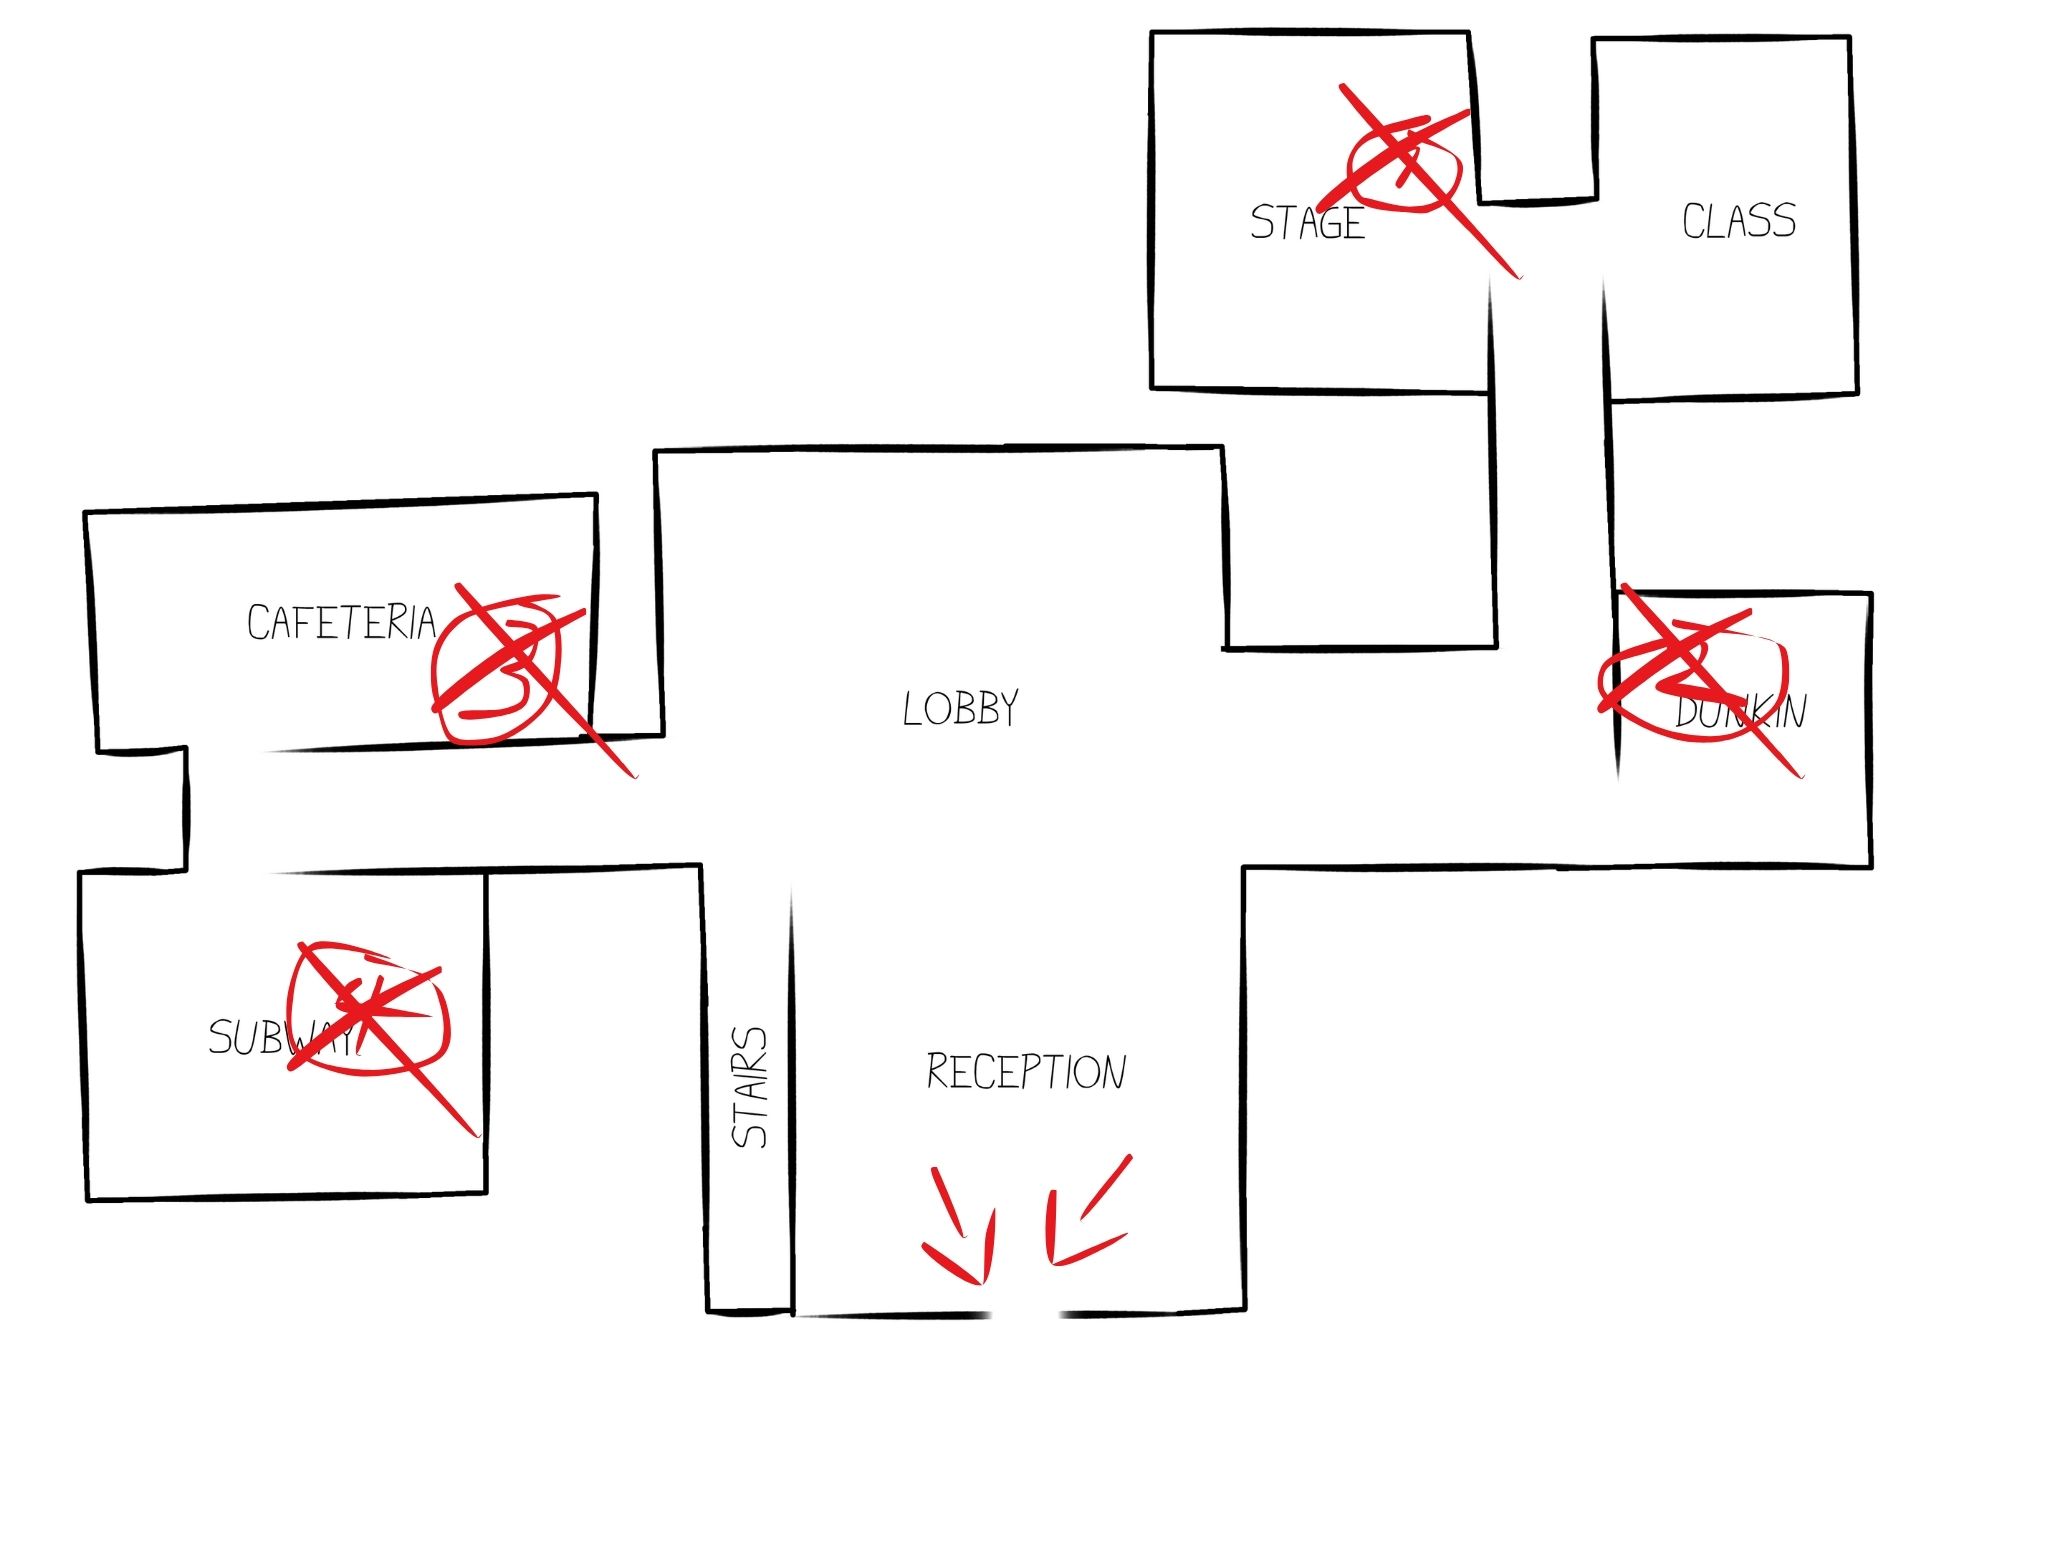 STAGE
CLASS
CAFETERIA
3
LOBBY
2
DUNKIN
SUBWAY
STAIRS
RECEPTION